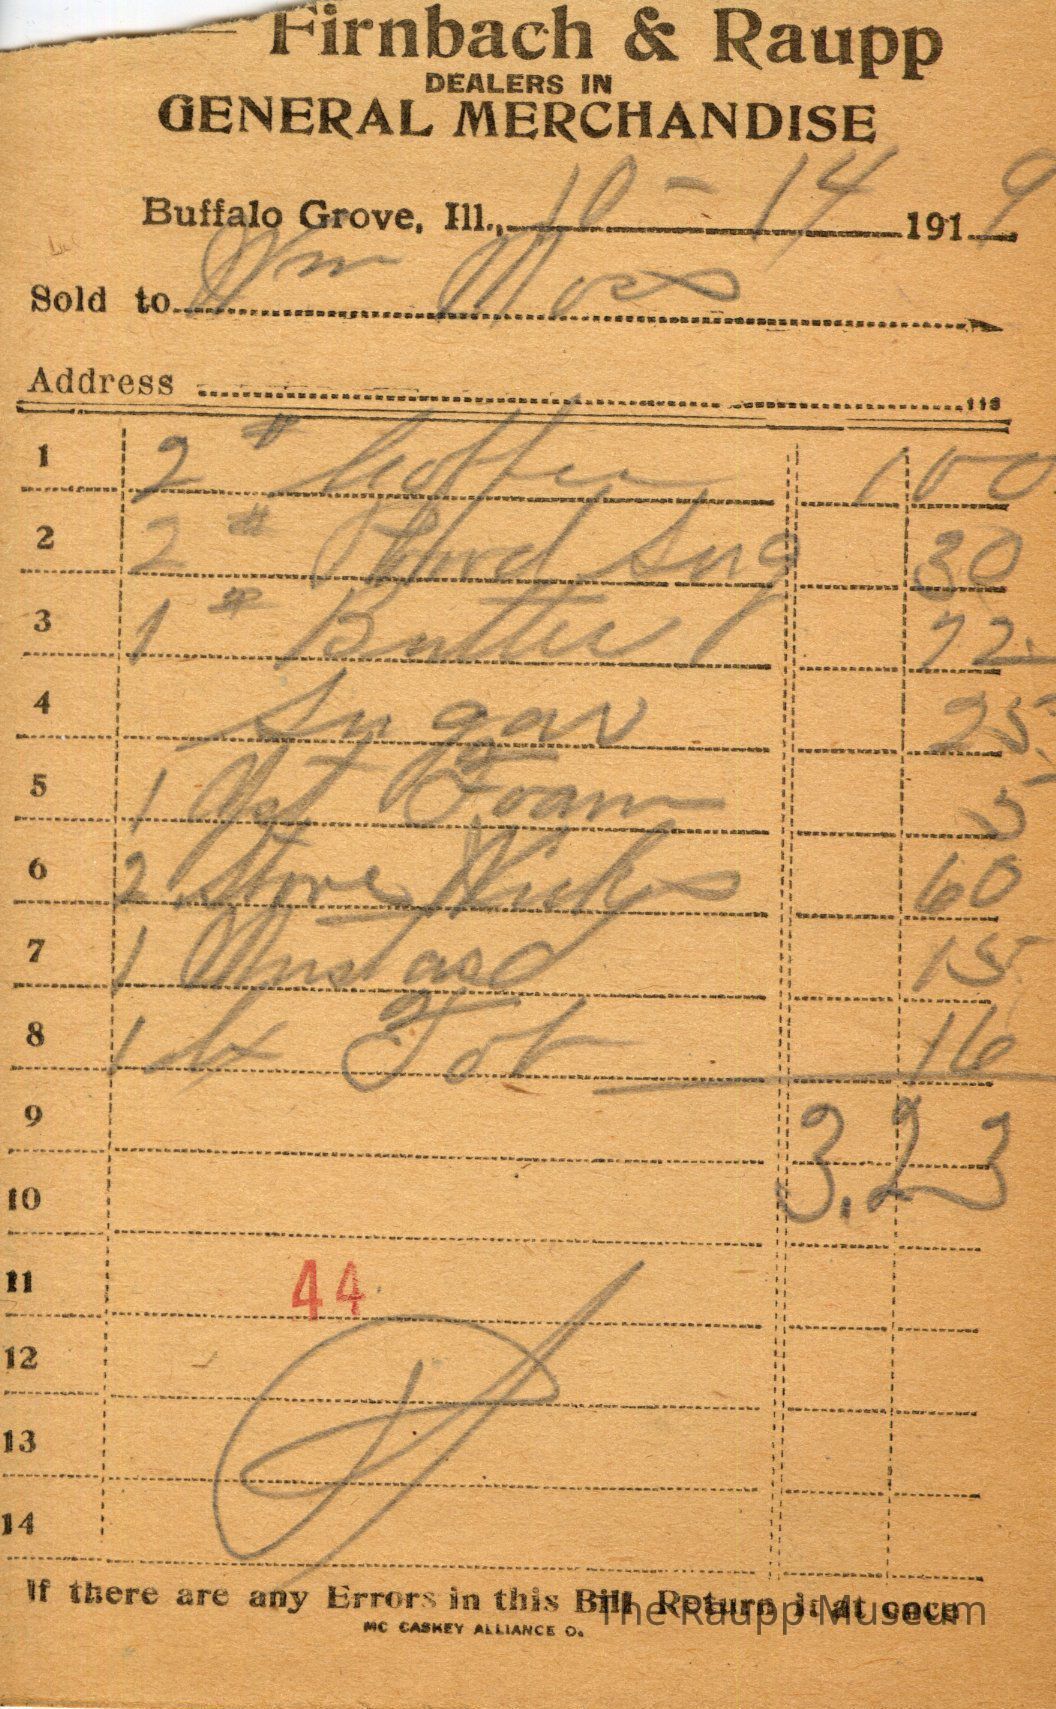 Firnbach & Raupp
DEALERS IN
GENERAL MERCHANDISE
Buffalo Grove, Ill., 10 - 14 1919
Sold to Wm Moss
Address
118
1 2 # Coffee 1 00
2 2 # Powd Sug 30
3 1 # Butter 72
4 Sugar 25
5 1 Yst Foam 5
6 2 Stove Wicks 60
7 1 Mustard 15
8 1 bx Tob 16
9 3.23
10
11 44
12
13
14
If there are any Errors in this Bill Return it at once
MC CASKEY ALLIANCE O.
The Raupp Museum